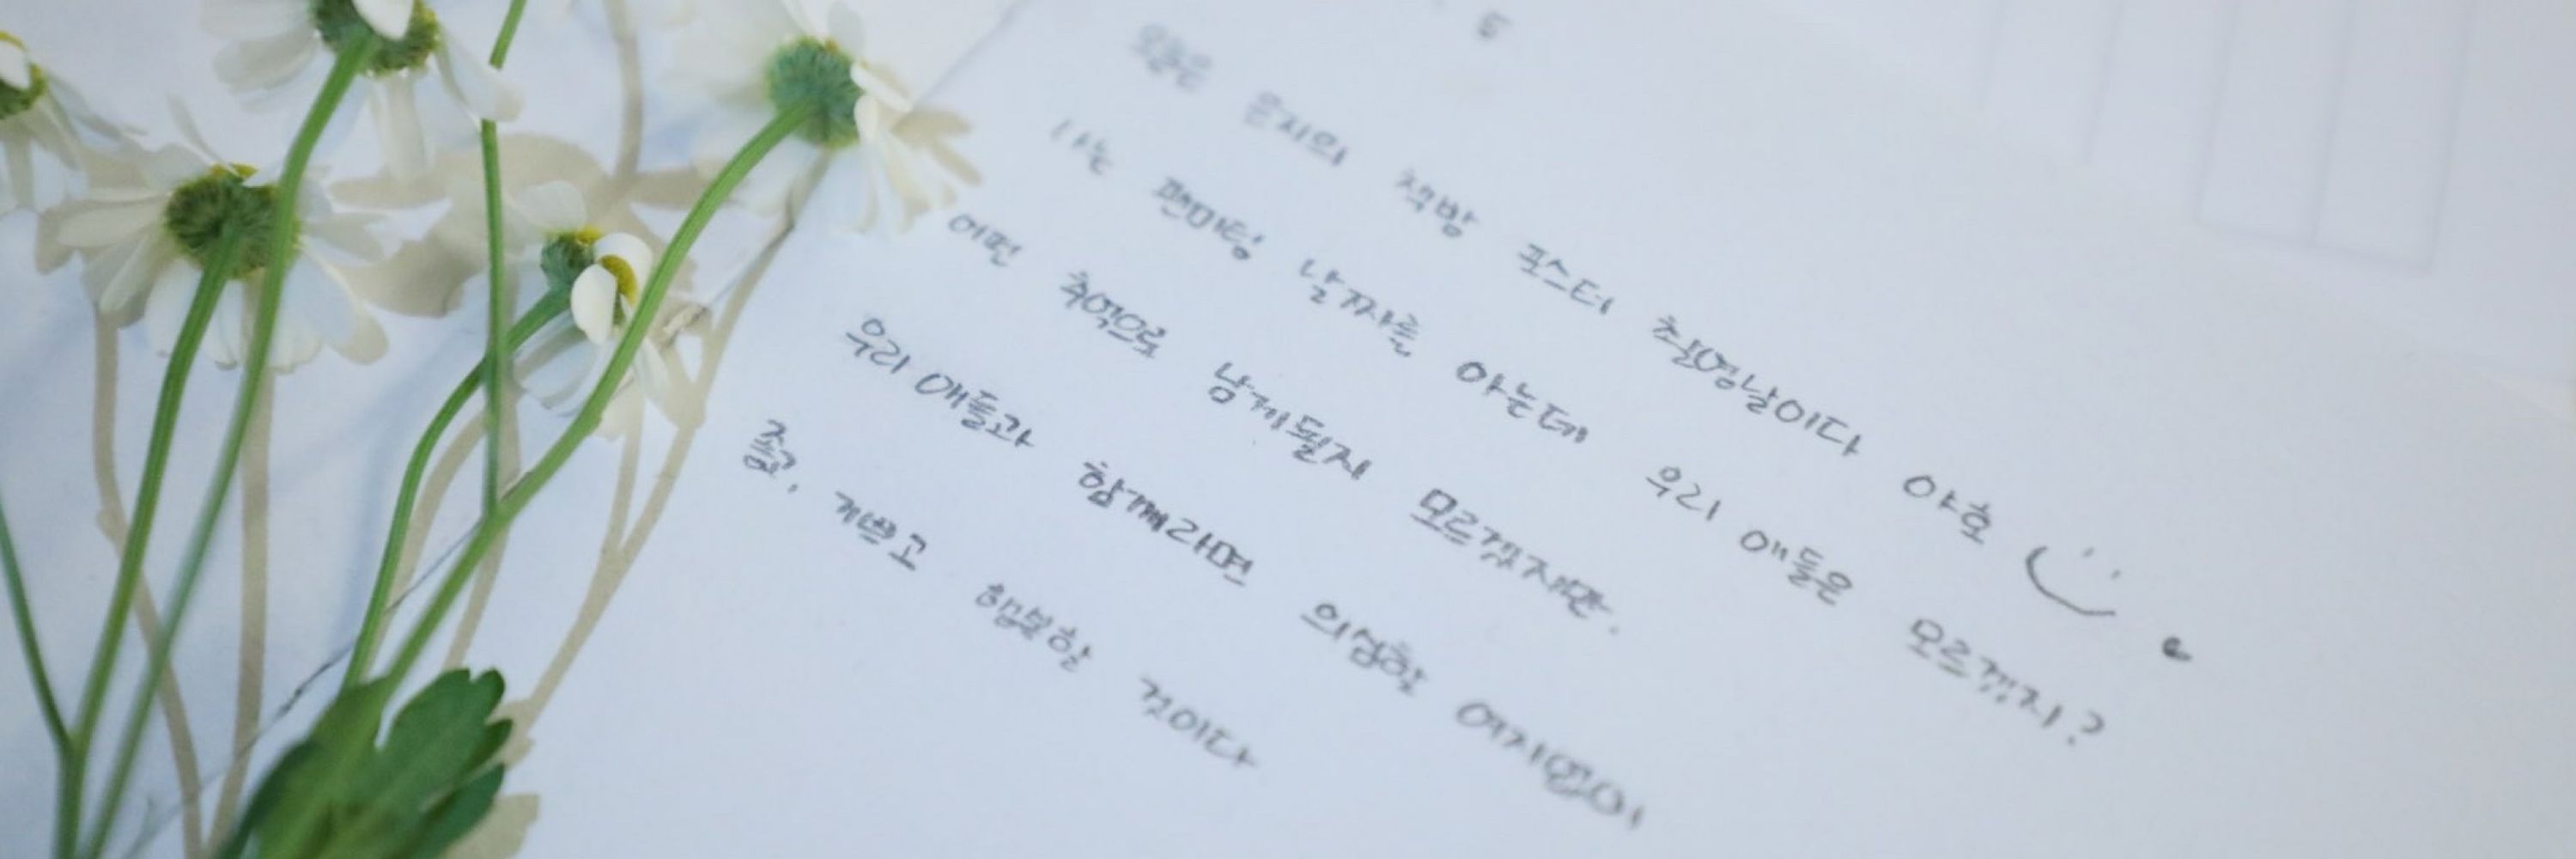 오늘은 은지의 책방 포스터 촬영날이다 야호
나는 팬미팅 날짜를 아는데 우리 애들은 모르겠지?
어떤 추억으로 남게될지 모르겠지만.
우리 애들과 함께라면 의심할 여지없이
즐겁고, 기쁘고 행복할 것이다